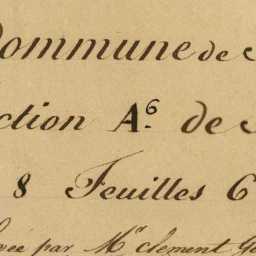 Commune de
ction A⁶. de
8 Feuilles 6
par Mʳ clement